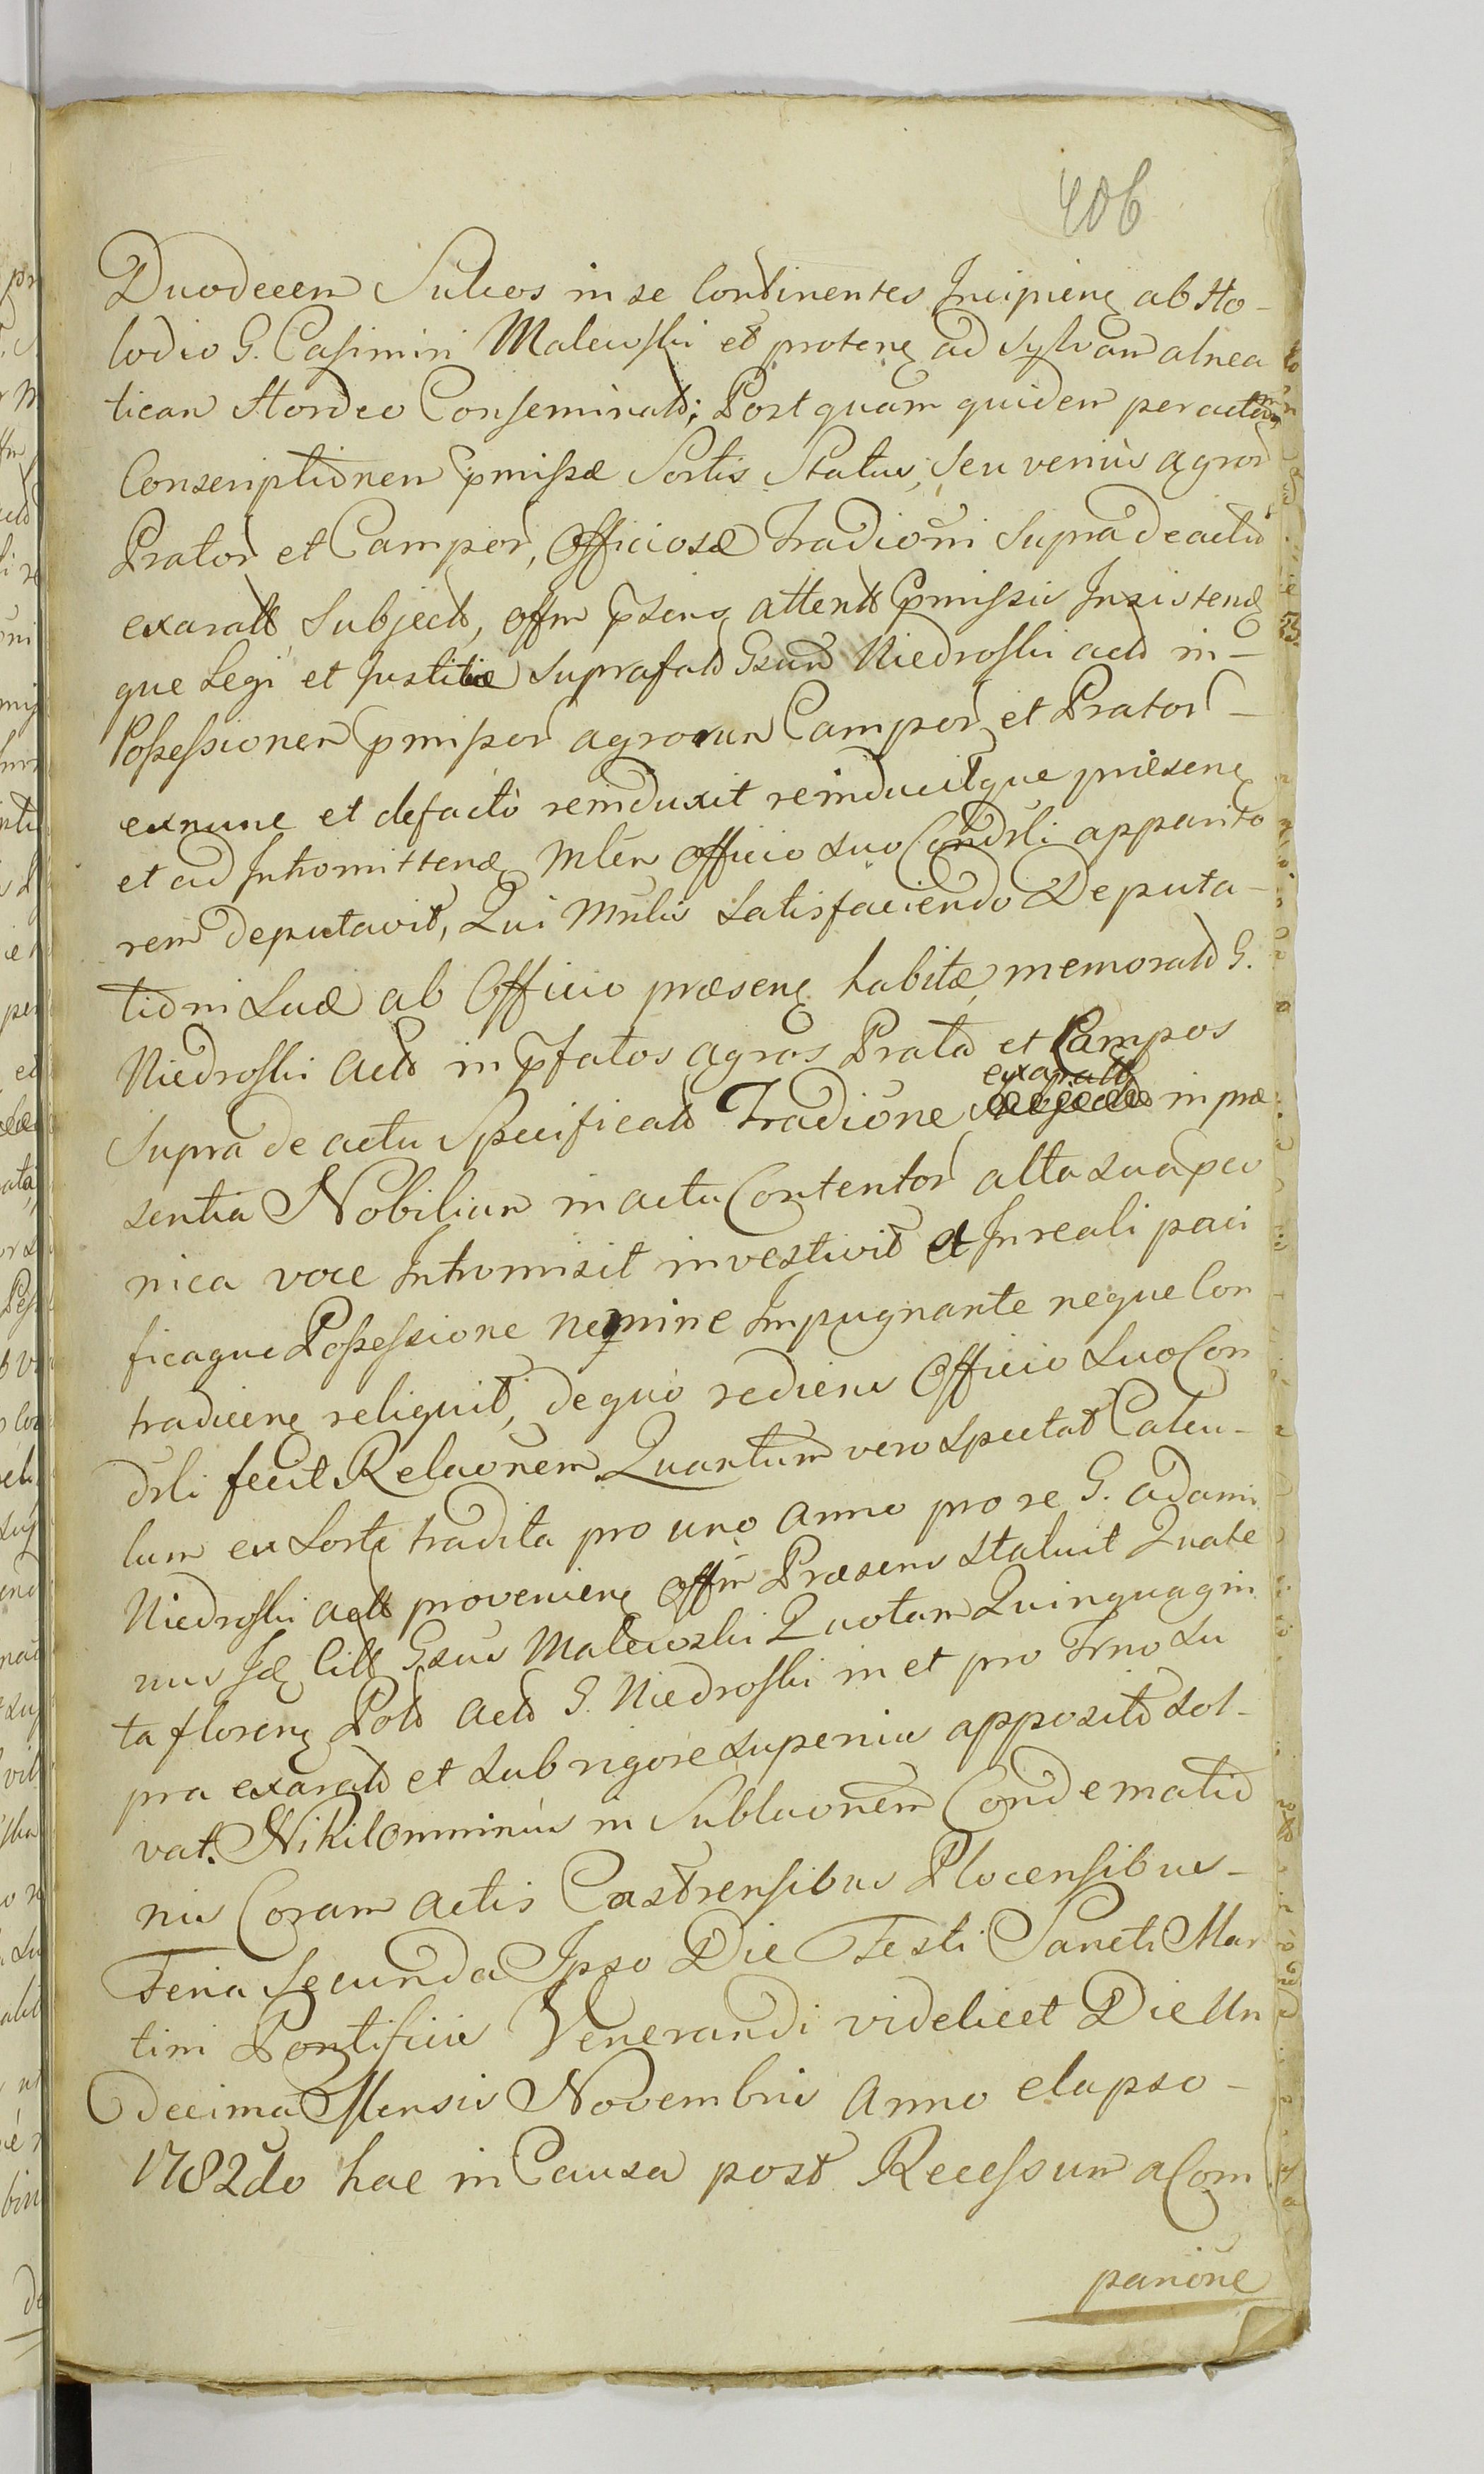 406
Duodecem Sulcos in se Continentes Incipieng ab Ho-
lodio G. Casimiri Malewski et proteng ad Sylvam alnea
ticam Hordeo Conseminatd; Post quam quidem peractam
Conscriptionem pmissæ Sortis Status, Seu verius agror
Prator et Campor, Officiosæ Tradioni Supra de actu
exaratt Subjectd, Offm psens attentt pmissis Insistend
que Legi et Justitiæ Suprafatd Gsum Niedroski actd in-
Possessionem pmissor agrorum Campor et Prator-
exnunc et defacto reinduxit reinducitque præseng
et ad Intromittend Mlem Officio Suo Condsli apparito
rem deputavit, Qui Mnlis Satisfaciendo Deputa-
tioni Suæ ab Officio præseng habitæ, memoratd G.
Niedroski Actd in pfatos agros Prata et Campos
exaratt
Supra de actu Specificatd Tradione in præ
sentia Nobilium in actu Contentor alta sua per
nica voce Intromisit investivit et In reali paci
ficaque Possessione nemine Impugnante neque Con
tradiceng reliquit, de quo rediens Officio Suo Con
dsli fecit Relaonem. Quantum vero Spectat Calcu-
lum ex Sorte tradita pro uno Anno pro re G. Adami
Niedroski actt provenieng Offm Præsens Statuit Quate
nus Id Citt Gsus Malewski Quotam Quinquagin
ta floreng Pold Actd G. Niedroski in et pro Trno Su
pra exaratd et Sub rigore Superius appositd Sol-
vat. Nihilomninus in Sublaonem Condematio
nis Coram Actis Castrensibus Plocensibus-
Feria Secunda Ipso Die Festi Sancti Mar
tini Pontificis Venerandi videlicet Die Un
decima Mensis Novembris Anno elapso-
1782do hac in Causa post Recessum a Com
panione